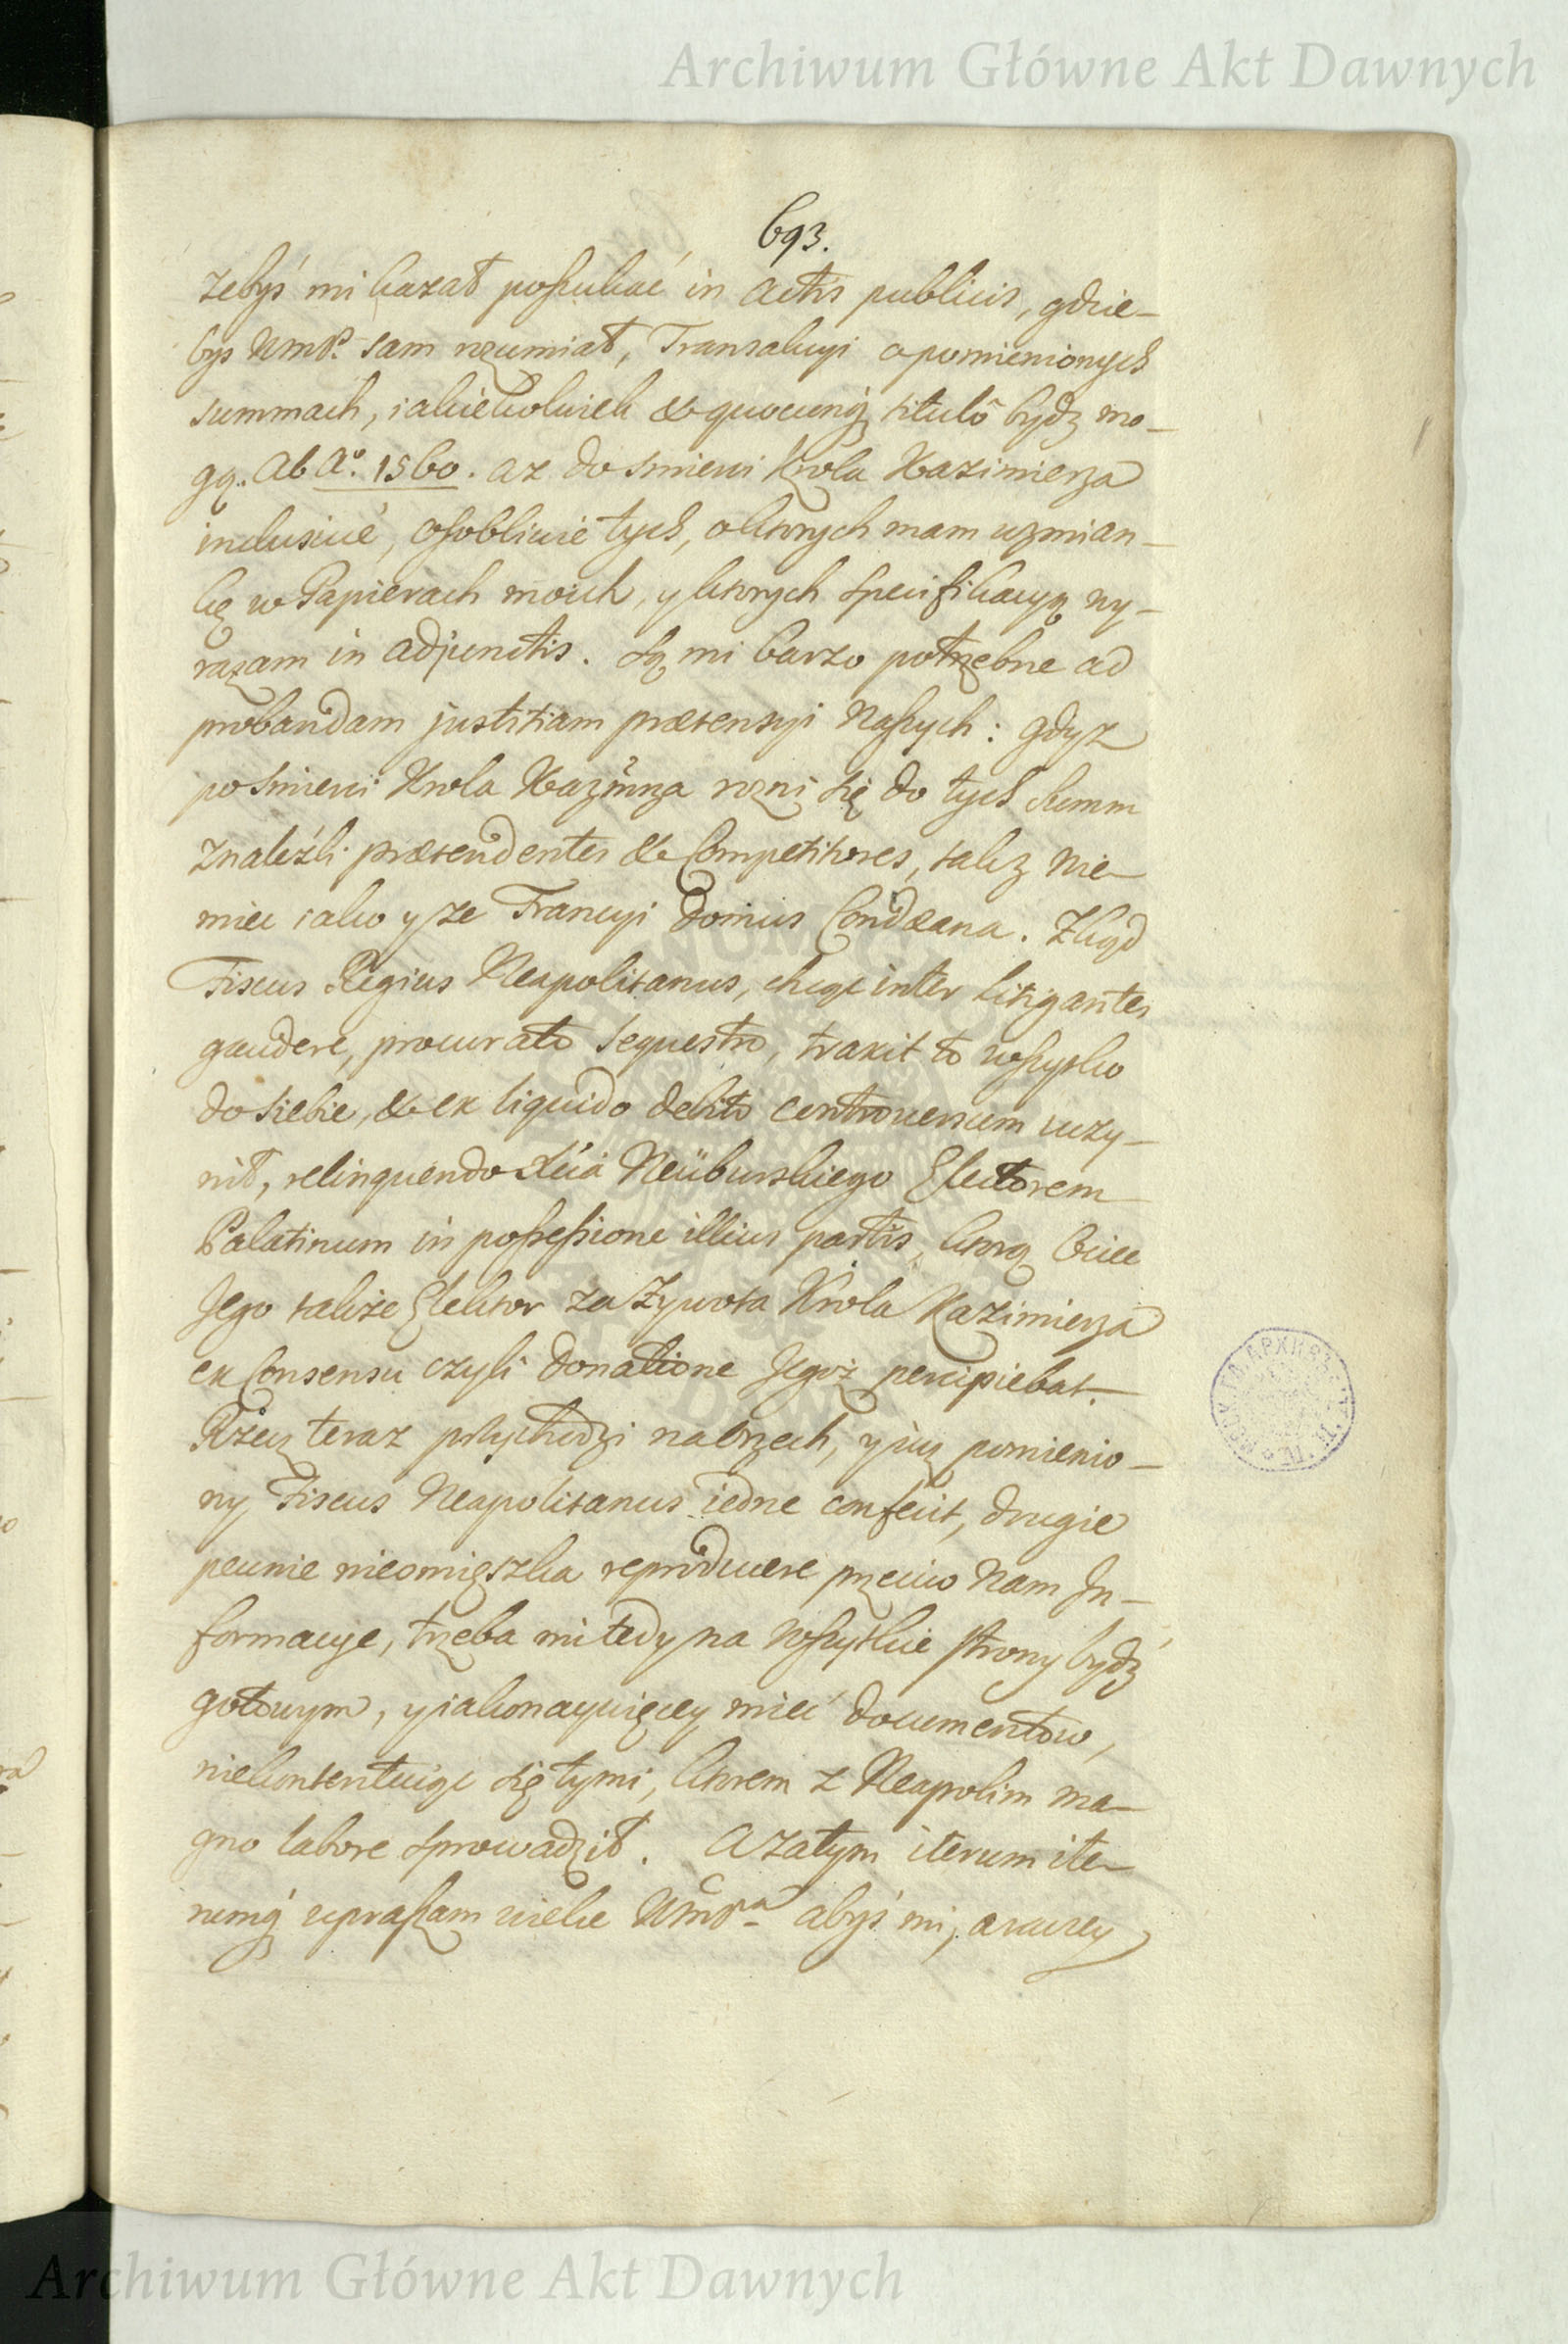 Archiwum Główne Akt Dawnych
693.
zebyś mi kazał poszukać in Actis publicis, gdzie-
bys WmP. sam rozumiał, Transakcyi o pomienionych
summach, iakiekolwiek & quocunq; titulô bydz mo-
gą. Ab Aº. 1560. az do smierci Krola Kazimierza
inclusivé, osobliwie tych, o ktorych mam wzmian-
kę w Papierach moich, y ktorych specifikacyą wy-
razam in adjunctis. Są mi barzo potrzebne ad
probandam justitiam prætensyi Naszych: gdyz
po smierci Krola Kazimrza rozni się do tych Summ
znalezli prætendentes & Competitores, tak z Nie-
miec iako y ze Francyi Domus Condæana. Zkąd
Fiscus Regius Neapolitanus, chcąc inter litigantes
gaudere, procurato sequestro, traxit to wszystko
do siebie, & ex liquido debito controversum uczy-
nił, relinquendo Xcia Neüburskiego Electorem
Palatinum in possessione illius partis, ktorą Ociec
Jego takze Elektor za zywota Krola Kazimierza
ex Consensu czyli donatione Jegoż percipiebat.
Rzecz teraz przychodzi na brzech, y iuz pomienio-
ny Fiscus Neapolitanus iedne confecit, drugie
pewnie nieomięszka reproducere przeciw Nam In-
formacye, trzeba mi tedy na wszystkie strony bydz
gotowym, y iako naywięcey miec documentow,
niekontentuiąc się tymi, ktorem z Neapolim ma-
gno labore sprowadził. A zatym iterum ite-
rumq; upraszam wielce WmPª abyś mi,
Archiwum Główne Akt Dawnych